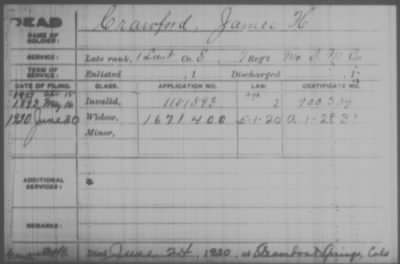 DEAD
NAME OF SOLDIER: Crawford, James H.
SERVICE: Late rank, 1 Lieut Co. E, 7 Reg't Mo S M C
TERM OF SERVICE: Enlisted , 1 Discharged , 1
DATE OF FILING. CLASS. APPLICATION NO. LAW. CERTIFICATE NO.
1892 May 16 Invalid, 1181893
1920 June 30 Widow, 1671400 5-1-20
Minor,
ADDITIONAL SERVICES:
REMARKS:
Died June 24, 1920, at Steamboat Springs, Colo